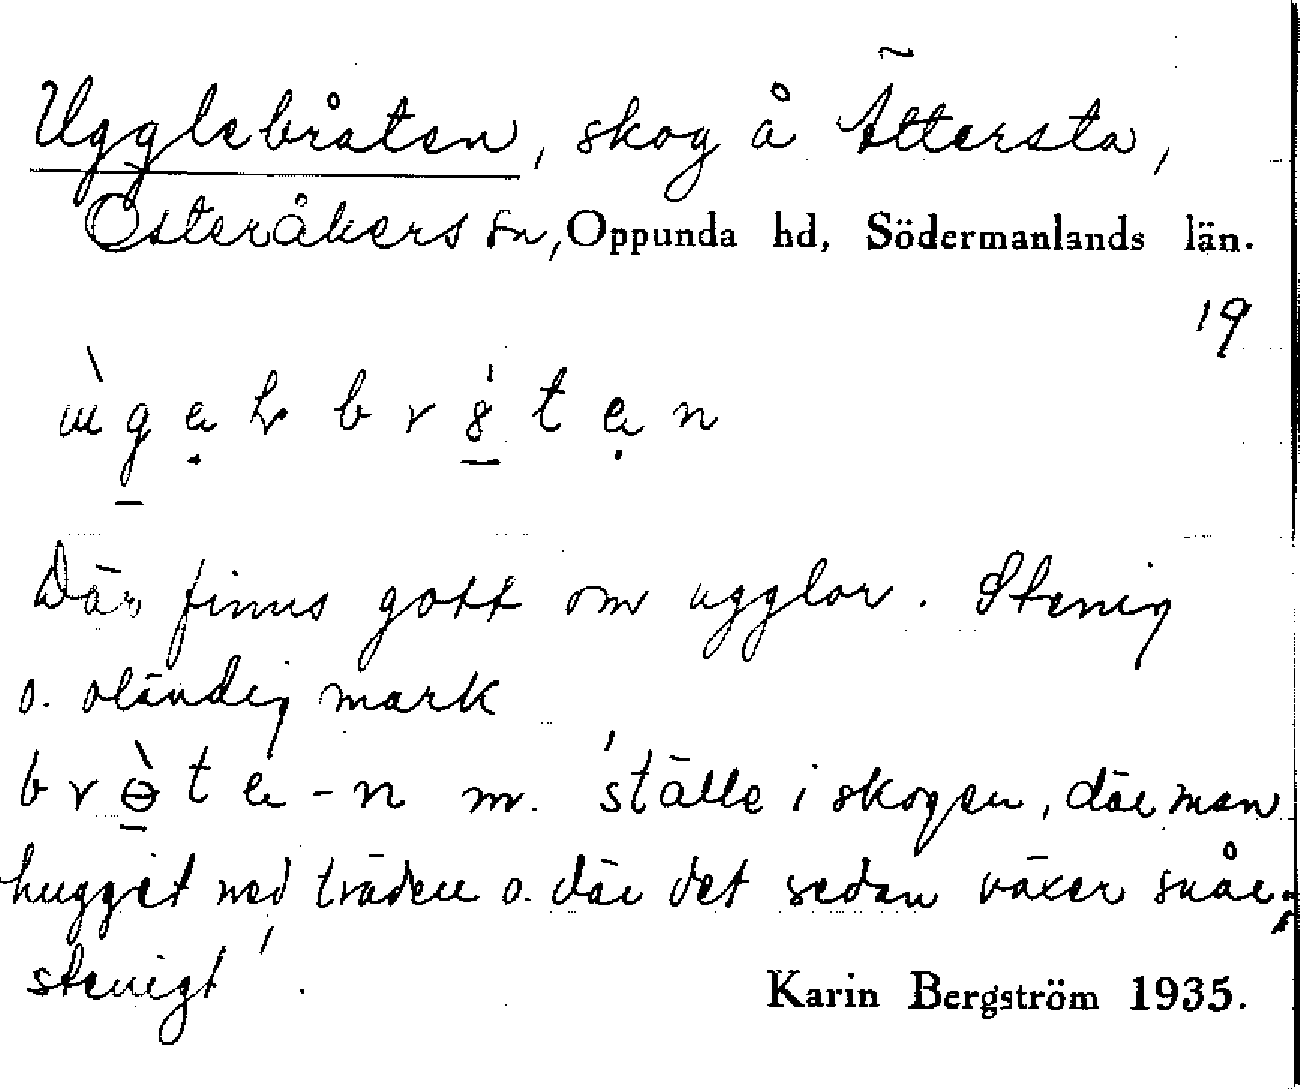 Ugglebråten, skog å Ättersta,
Österåkers sn, Oppunda hd, Södermanlands län.
19
Där finns gott om ugglor. Stenig
o. oländig mark
'ställe i skogen, där man
hugget ned träden o. där det sedan växer snår;
stenigt'.
Karin Bergström 1935.